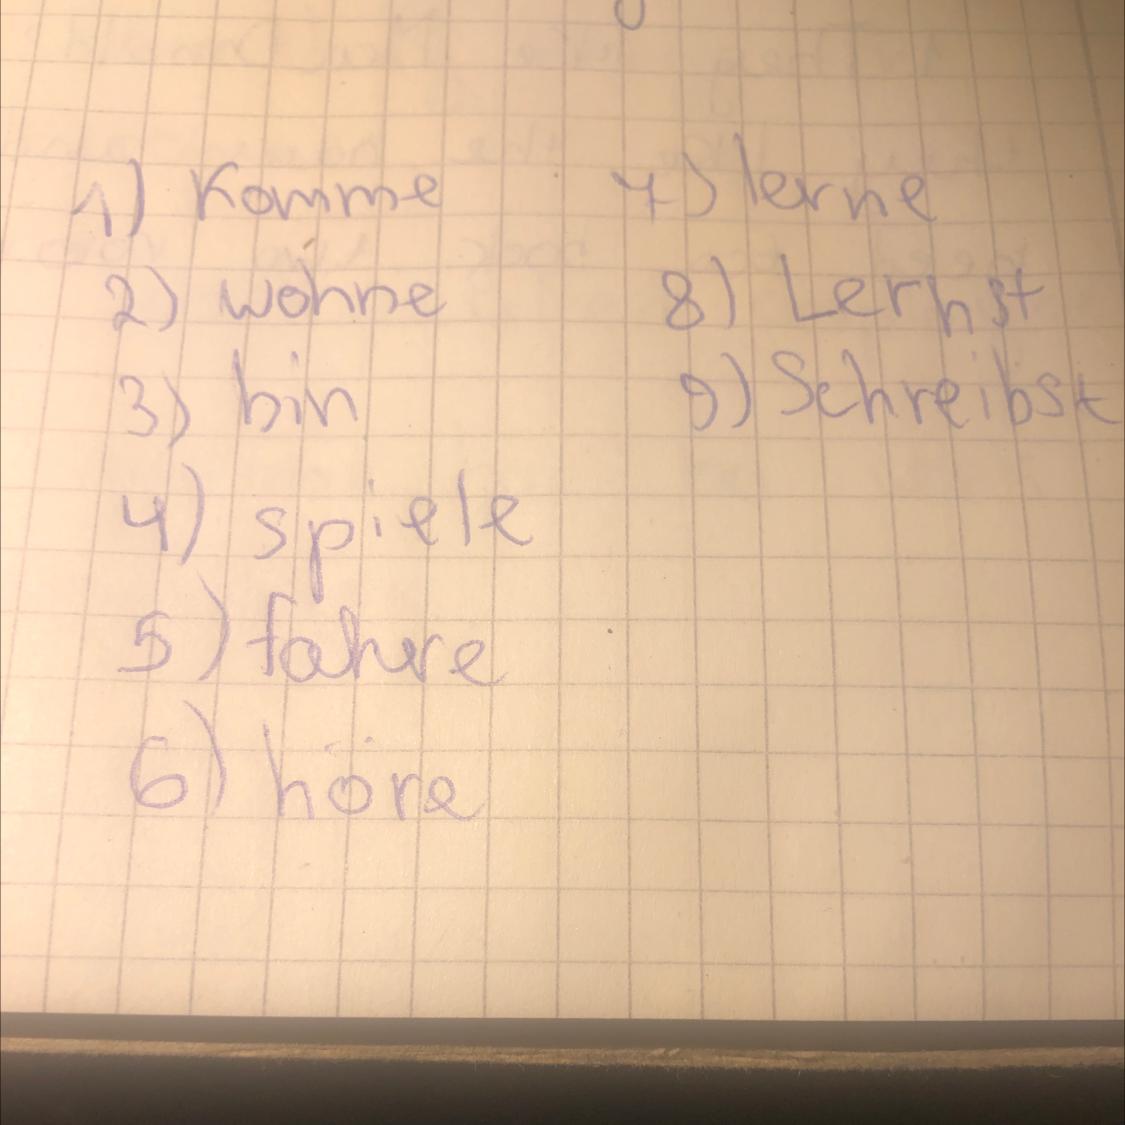 1) Komme
2) wohne
3) bin
4) spiele
5) fahre
6) höre
7) lerne
8) Lernst
9) Schreibst